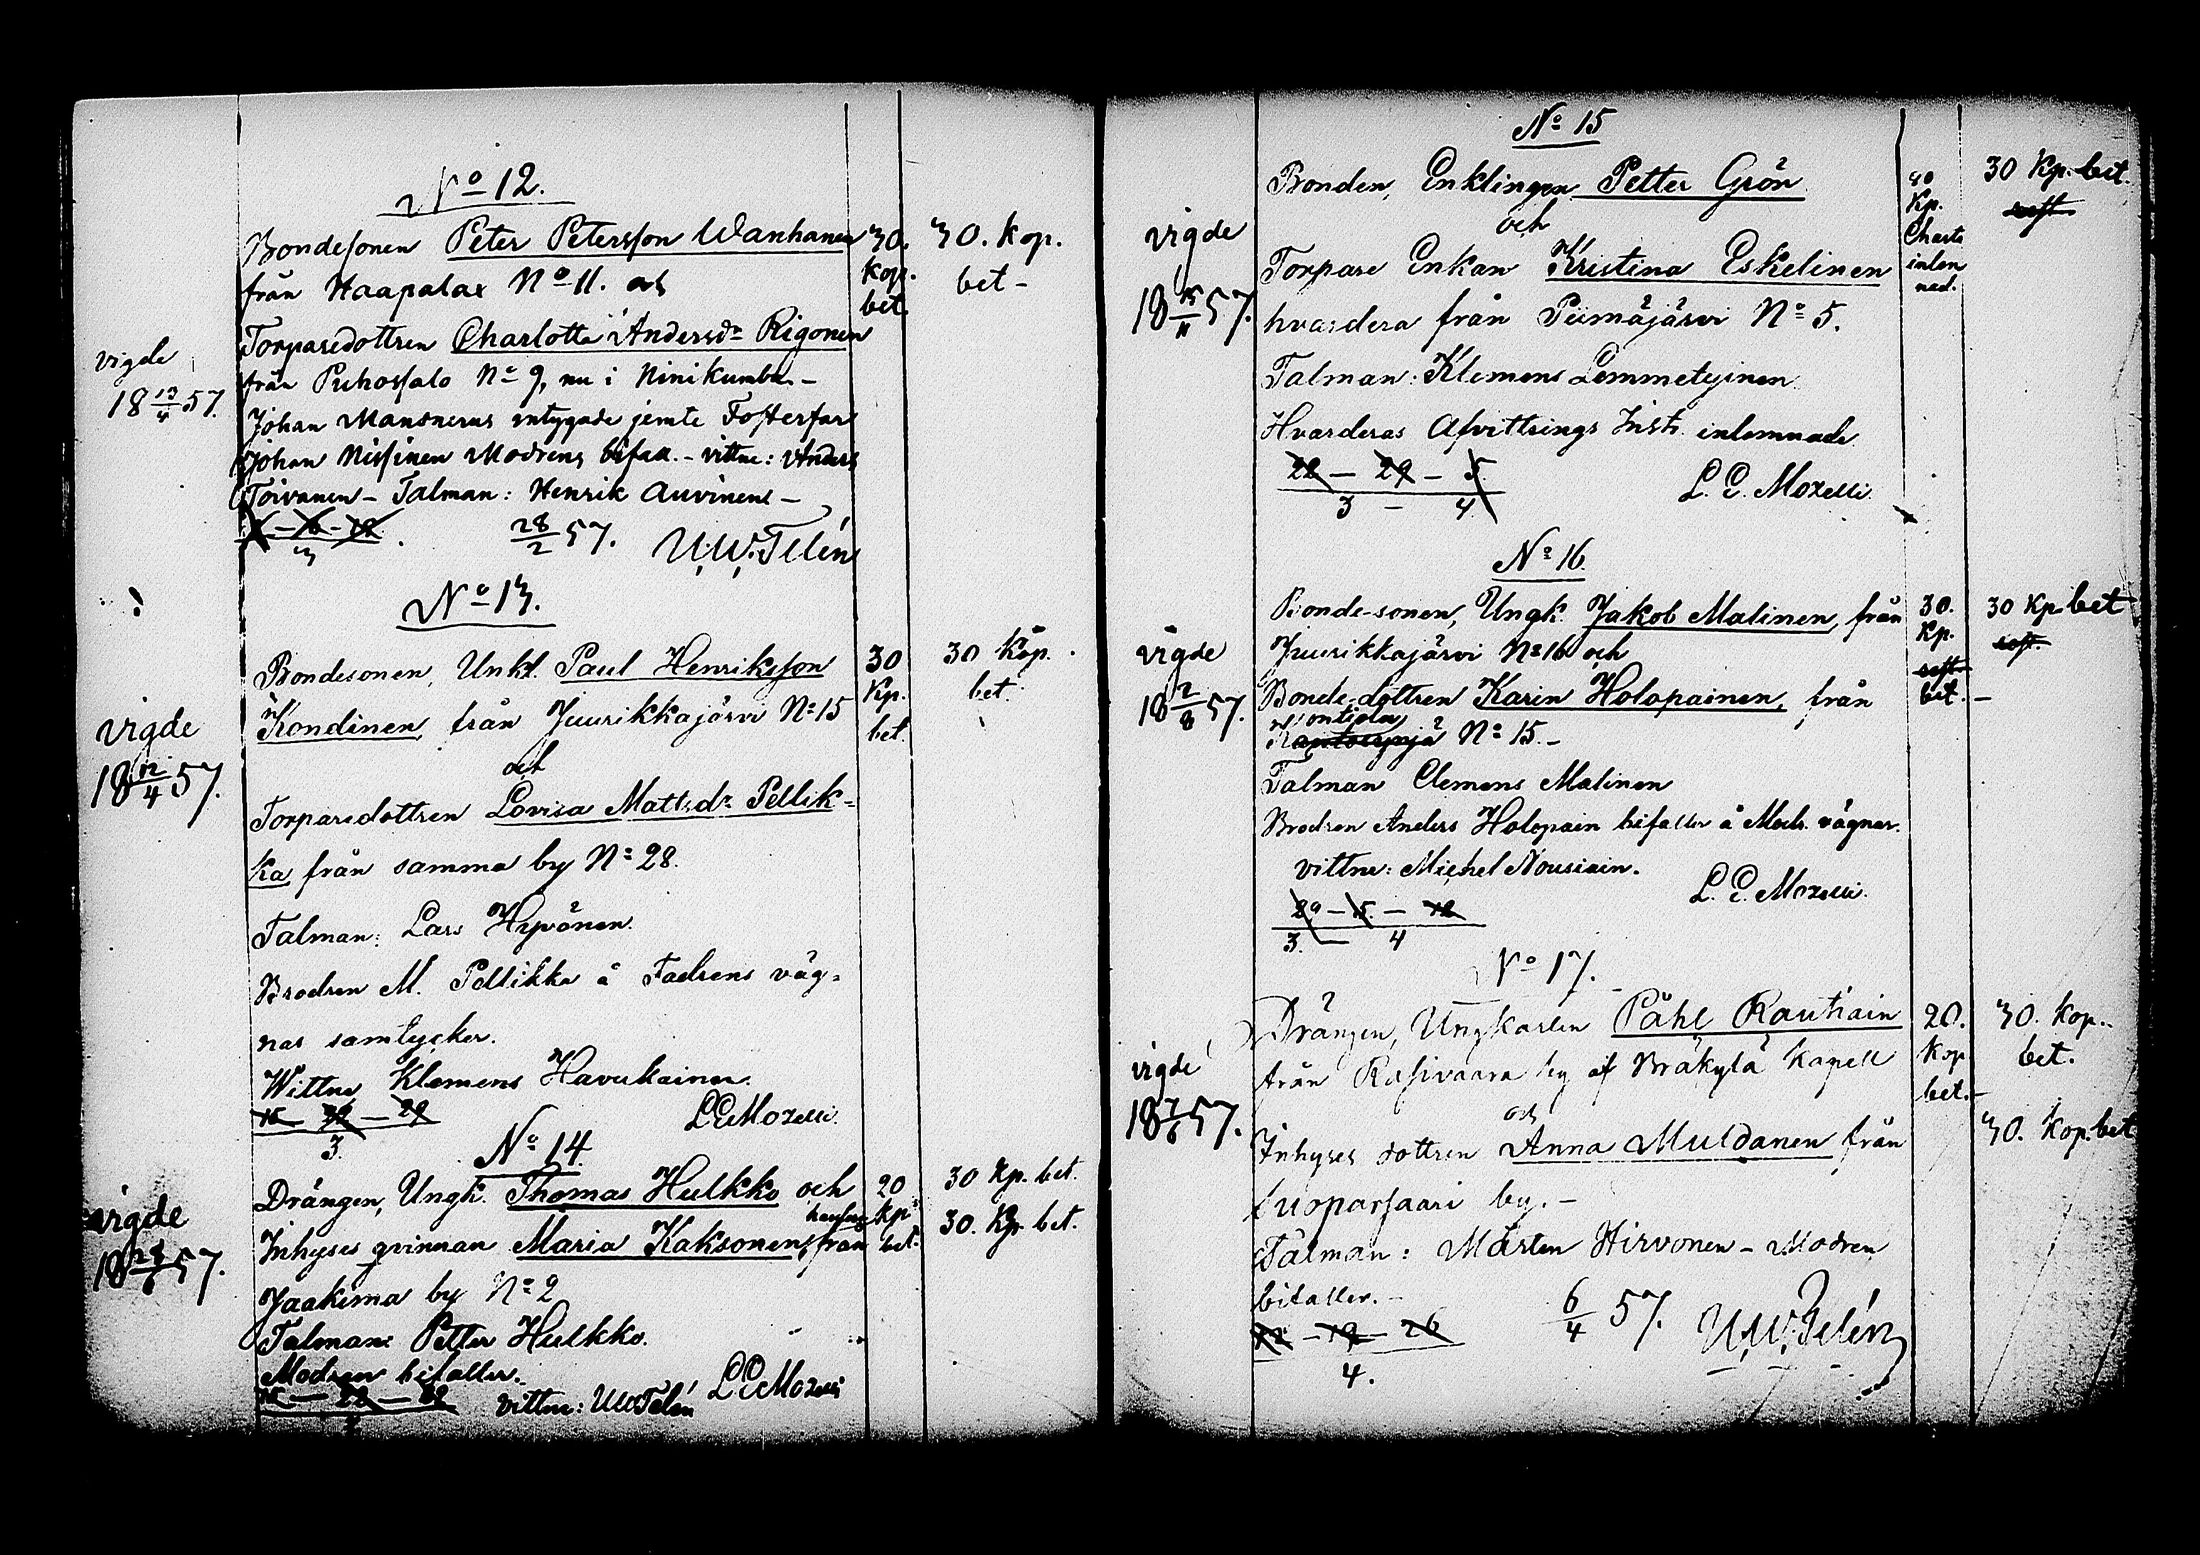 No 12.
Bondesonen Peter Petersson Wanhanen
från Haapalax No 11. och
Torparedottren Charlotta Andersdr Rigonen
från Puhossalo No 9, nu i Ninikumbu –
Johan Mansnerus intygade jemte Fosterfar
Johan Nissinen Modrens bifall. – vittne: Anders
Toivanen – Talman: Henrik Auvinens –
28/2 57. U.W. Telén
30.
kop.
bet.
30. kop.
bet –
vigde
18 13/4 57.
No 13.
Bondesonen, Unkl. Paul Henriksson
Kondinen, från Juurikkajärvi No 15
och
Torparedottren Lovisa Mattsdr Pellik=
ka från samma by No 28.
Talman: Lars Hyvönen.
Brodren M. Pellikka å Fadrens väg=
nar samtycker.
Wittne Klemens Havukainen.
15 – 22 – 29
3.
L E Mozelli.
30
Kp.
bet.
30 Kop.
bet
vigde
18 12/4 57.
No 14.
Drängen, Ungk. Thomas Hulkko och
Inhyses qvinnan Maria Kaksonen, från
Jaakima by No 2
Talman: Petter Hulkko.
Modren bifaller.
vittne: UWTelén L E Mozelli
20
Kp
bet.
30 Kp. bet.
30. Kp bet.
vigde
57.
No 15
Bonden, Enklingen Petter Grön
och
Torpare Enkan Kristina Eskelinen
hvardera från Piimäjärvi No 5.
Talman: Klemens Lemmetyinen.
Hvarderas Afvittrings Instr. inlemnade
22 – 29 – 5.
3 – 4
L. E. Mozelli.
40
Kp.
Charta
inlem
nad.
30 Kp. bet.
rest.
vigde
18 15/11 57.
No 16.
Bonde-sonen, Ungk. Jakob Malinen, från
Juurikkajärvi No 16 och
Bonde-dottren Karin Holopainen, från
No 15. –
Talman Clemens Malinen
Brodren Anders Holopain bifaller å Modr. vägnar.
vittne: Michel Nousiain.
29 – 5. – 12
3. – 4
L. E. Mozelli.
30.
Kp.
rest.
bet. –
30 Kp bet
rest.
vigde
18 2/8 57.
No 17.
Drängen, Ungkarlen Påhl Rautiain
från Rasivaara by af Bräkylä Kapell
och
Inhyses dottren Anna Muldanen från
Luoparsaari by. –
Talman: Mårten Hirvonen – Modren
bifaller. –
12 – 19 – 26
4.
6/4 57. U.W. Telén
20.
Kop
bet. –
30. kop.
bet.
30. kop. bet
vigde
57.